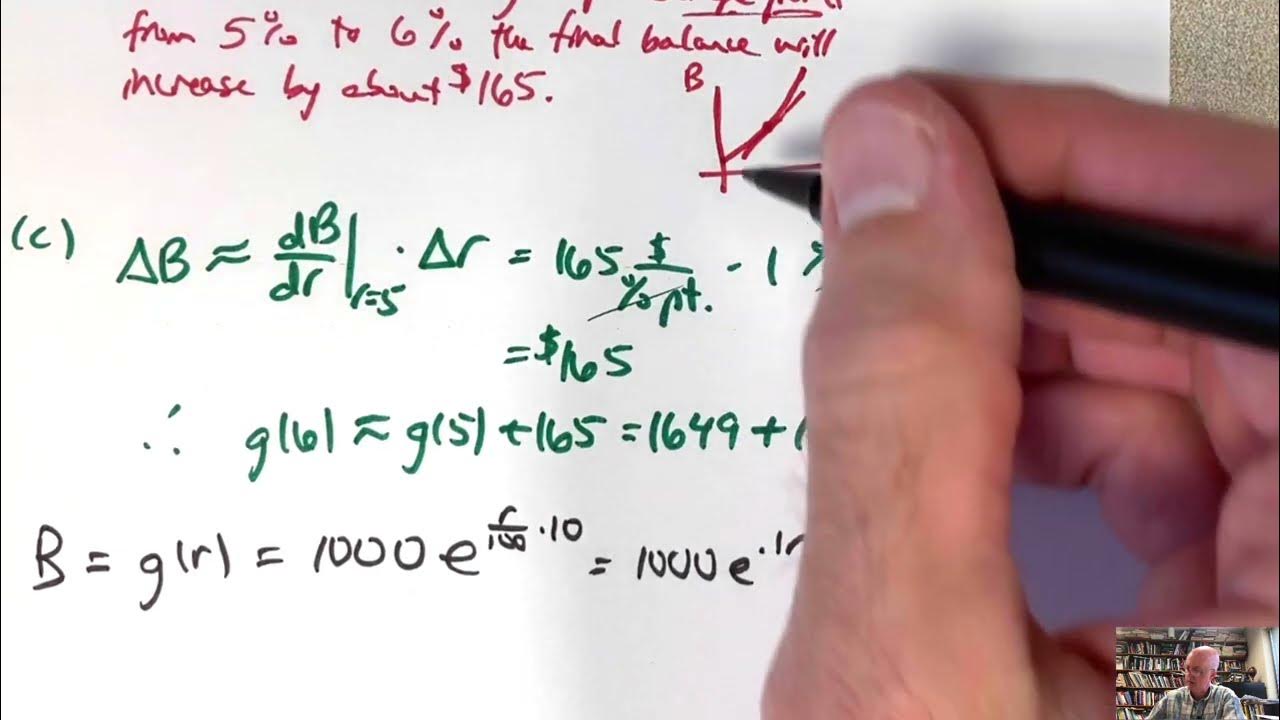 from 5% to 6% the final balance will
increase by about $165.
B
(c) ΔB ≈ dB/dr|r=5 · Δr = 165 $/% pt. - 1 %
= $165
∴ g(6) ≈ g(5) + 165 = 1649 + 1
B = g(r) = 1000 e^(r/100 · 10) = 1000 e^.1r